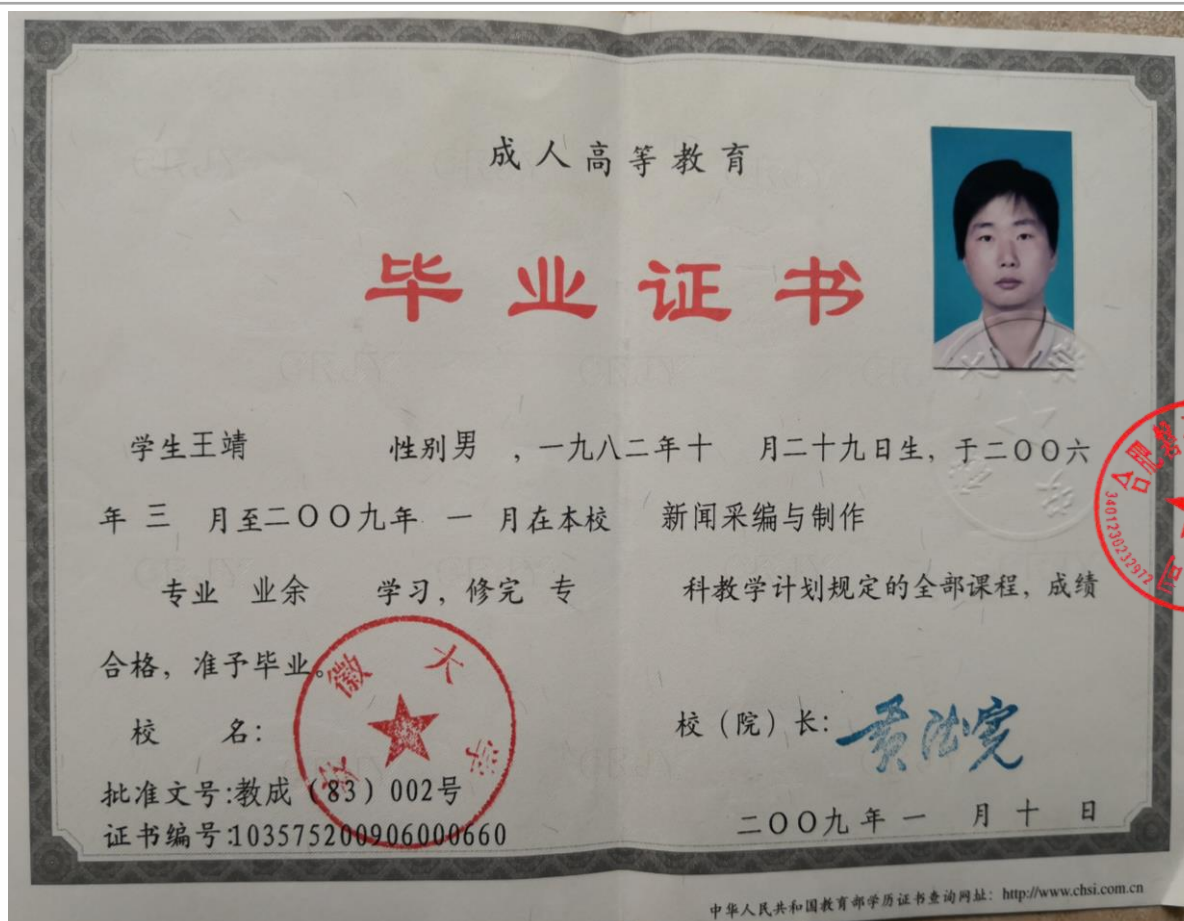 成人高等教育
毕业证书
学生王靖 性别男 ，一九八二年十 月二十九日生，于二〇〇六
年 三 月至二〇〇九年 一 月在本校 新闻采编与制作
专业 业余 学习，修完 专 科教学计划规定的全部课程，成绩
合格，准予毕业。
安徽大学
校 名：
校（院）长：黄德宽
批准文号:教成（83）002号
证书编号:103575200906000660
二〇〇九年 一 月 十 日
中华人民共和国教育部学历证书查询网址：http://www.chsi.com.cn
3401230232972